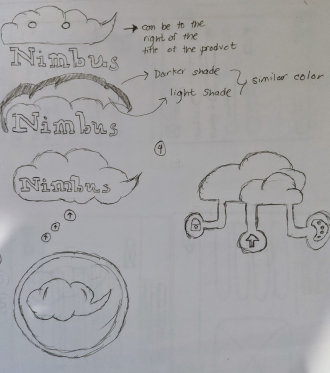 can be to the
right of the
title of the product
Nimbus
Darker shade
light shade
similar color
Nimbus
Nimbus
4